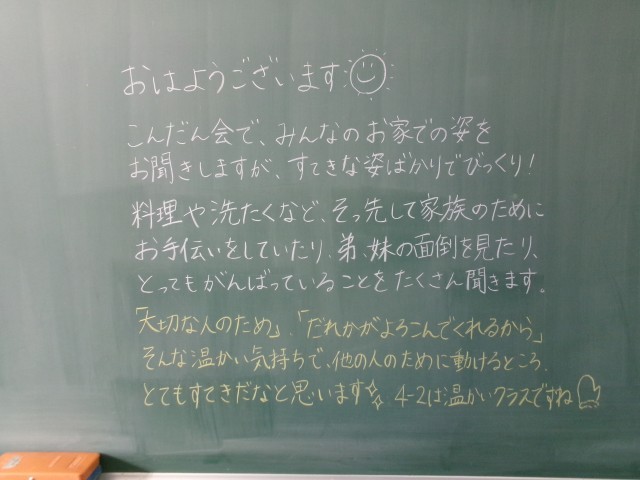 おはようございます
こんだん会で、みんなのお家での姿を
お聞きしますが、すてきな姿ばかりでびっくり!
料理や洗たくなど、そっ先して家族のために
お手伝いをしていたり、弟、妹の面倒を見たり、
とってもがんばっていることをたくさん聞きます。
「大切な人のため」、「だれかがよろこんでくれるから」
そんな温かい気持ちで、他の人のために動けるところ、
とてもすてきだなと思います 4-2は温かいクラスですね